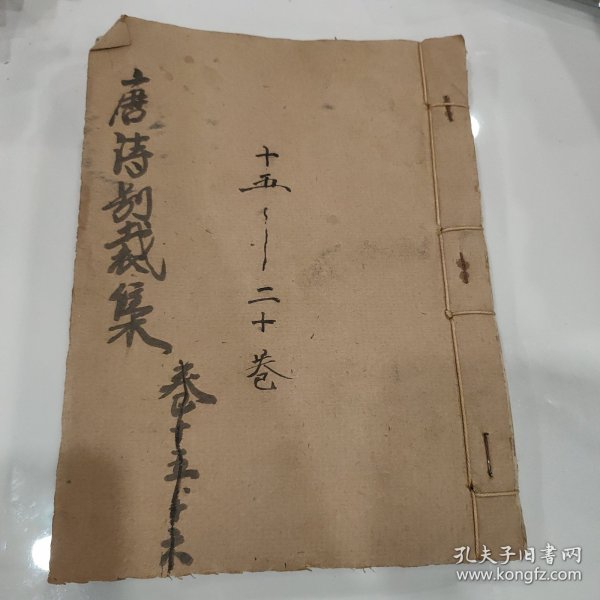 唐诗别裁集
卷十五
十五
二十卷
孔夫子旧书网
www.kongfz.com